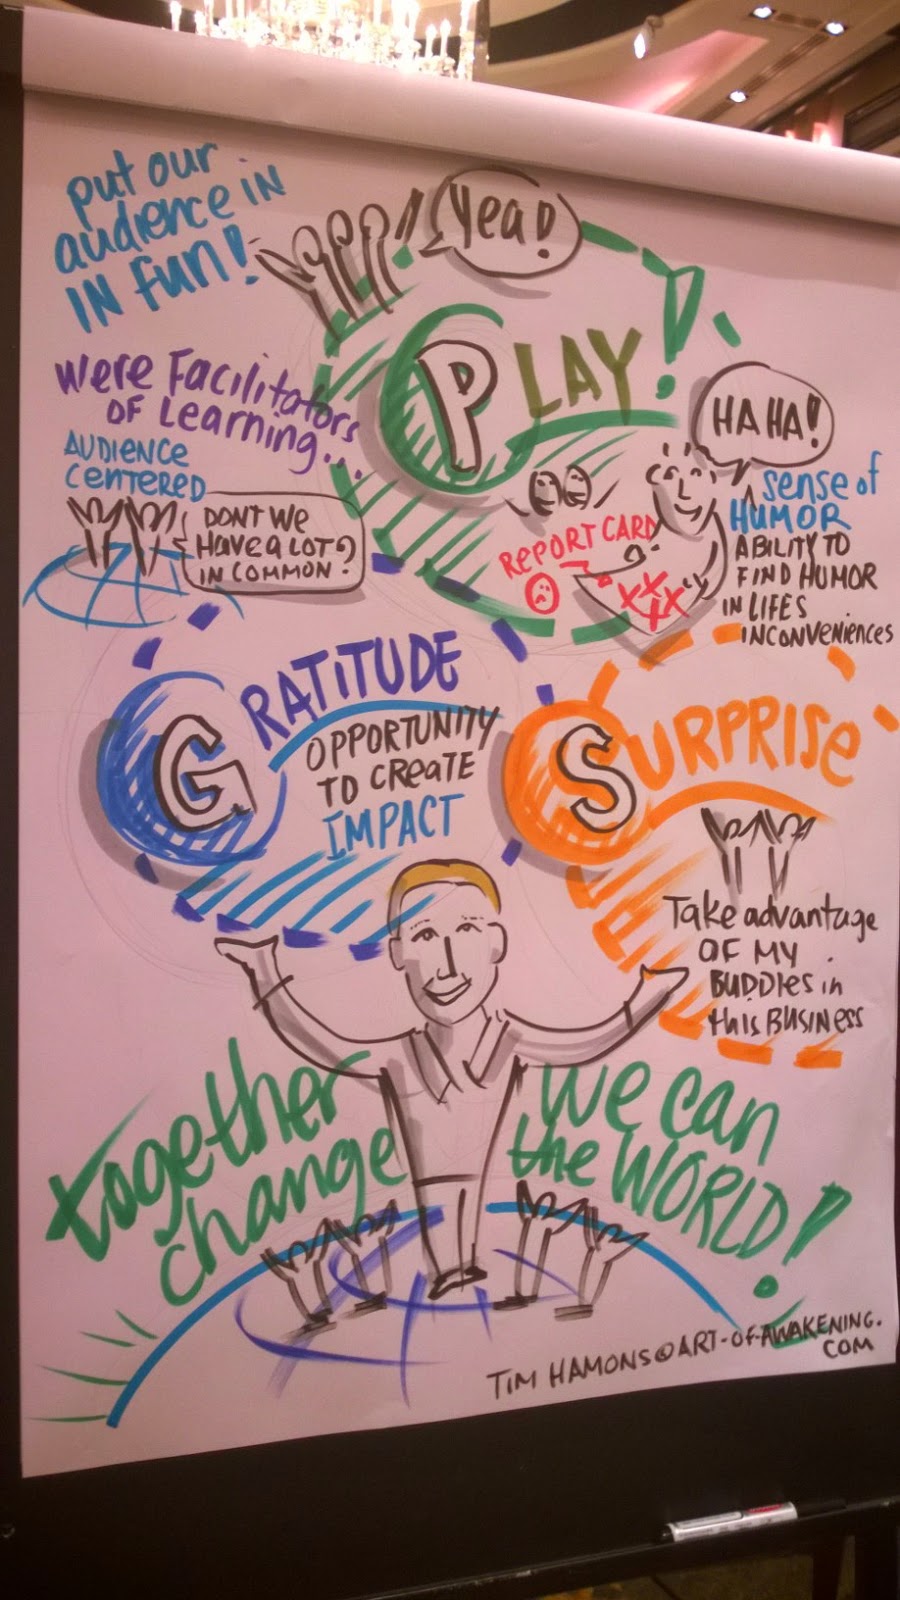 put our
audience in
IN fun!
Yea!
PLAY!
Were Facilitators
OF Learning...
AUDIENCE
CENTERED
DONT WE
Have a LOT
IN COMMON?
HA HA!
Sense of
HUMOR
ABILITY TO
FIND HUMOR
IN LIFES
INCONVENIENCES
REPORT CARD
XXX
X
GRATITUDE
OPPORTUNITY
TO CREATE
IMPACT
SURPRISE
Take advantage
OF MY
BUDDIES in
this BUSINESS
together
change
We can
the WORLD!
TIM HAMONS@ART-OF-AWAKENING.
COM